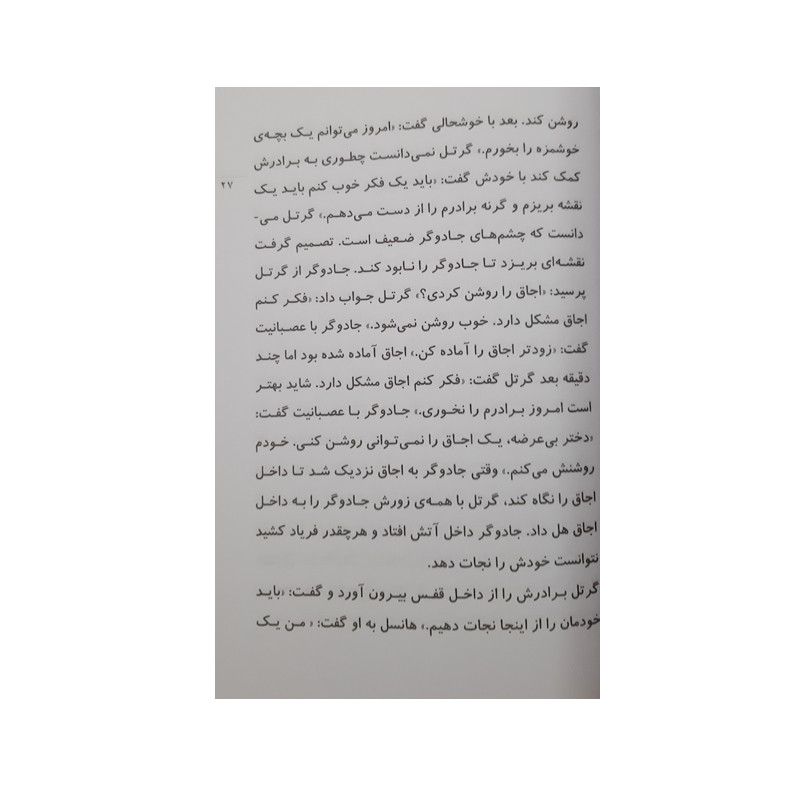 روشن کند. بعد با خوشحالی گفت: «امروز می‌توانم یک بچه‌ی
خوشمزه را بخورم.» گرتل نمی‌دانست چطوری به برادرش
کمک کند با خودش گفت: «باید یک فکر خوب کنم باید یک
۲۷
نقشه بریزم و گرنه برادرم را از دست می‌دهم.» گرتل می-
دانست که چشم‌های جادوگر ضعیف است. تصمیم گرفت
نقشه‌ای بریزد تا جادوگر را نابود کند. جادوگر از گرتل
پرسید: «اجاق را روشن کردی؟» گرتل جواب داد: «فکر کنم
اجاق مشکل دارد. خوب روشن نمی‌شود.» جادوگر با عصبانیت
گفت: «زودتر اجاق را آماده کن.» اجاق آماده شده بود اما چند
دقیقه بعد گرتل گفت: «فکر کنم اجاق مشکل دارد. شاید بهتر
است امروز برادرم را نخوری.» جادوگر با عصبانیت گفت:
«دختر بی‌عرضه، یک اجاق را نمی‌توانی روشن کنی. خودم
روشنش می‌کنم.» وقتی جادوگر به اجاق نزدیک شد تا داخل
اجاق را نگاه کند، گرتل با همه‌ی زورش جادوگر را به داخل
اجاق هل داد. جادوگر داخل آتش افتاد و هرچقدر فریاد کشید
نتوانست خودش را نجات دهد.
گرتل برادرش را از داخل قفس بیرون آورد و گفت: «باید
خودمان را از اینجا نجات دهیم.» هانسل به او گفت: « من یک